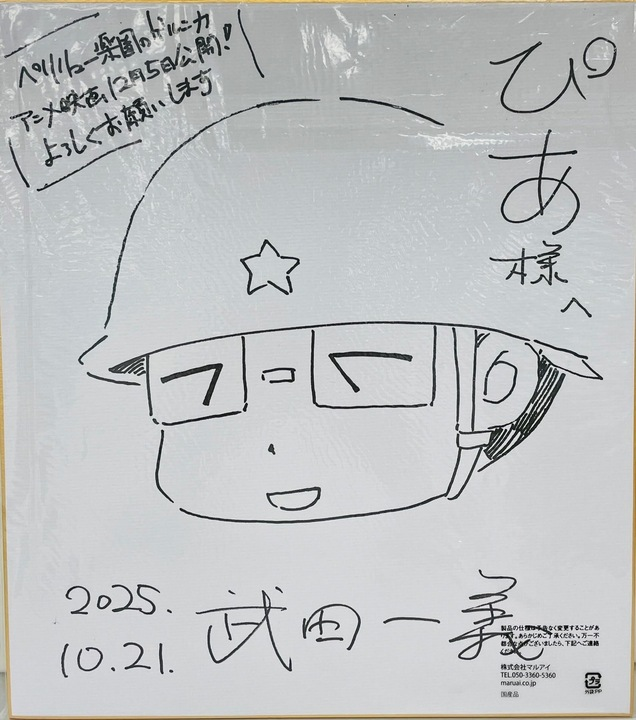 ペリリュー楽園のゲルニカ
アニメ映画12月5日公開!
よろしくお願いします
ぴあ様へ
2025.
10.21.
武田一義
製品の仕様は予告なく変更することがあ
ります。あらかじめご了承ください。万一不
都合な点がございましたら、下記へご連絡
ください。
株式会社マルアイ
TEL.050-3360-5360
maruai.co.jp
国産品
プラ
外袋:PP